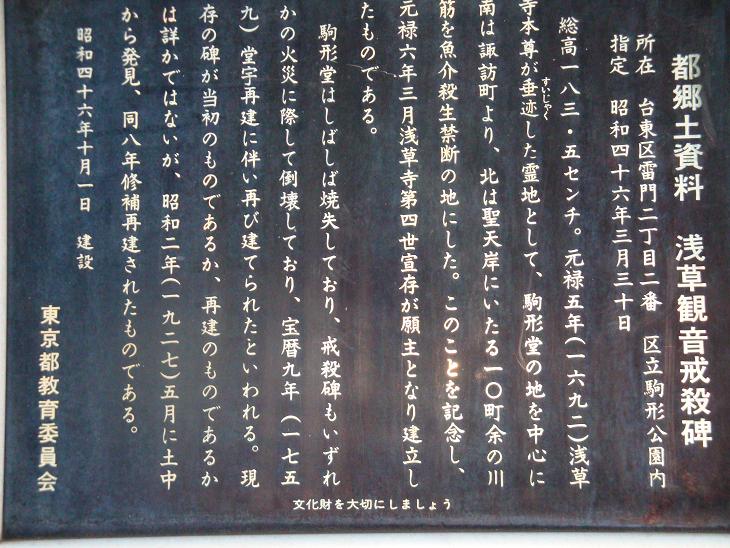 都郷土資料　浅草観音戒殺碑
所在　台東区雷門二丁目二番　区立駒形公園内
指定　昭和四十六年三月三十日
総高一八三・五センチ。元禄五年(一六九二)浅草
寺本尊が垂迹した霊地として、駒形堂の地を中心に
すいじゃく
南は諏訪町より、北は聖天岸にいたる一〇町余の川
筋を魚介殺生禁断の地にした。このことを記念し、
元禄六年三月浅草寺第四世宣存が願主となり建立し
たものである。
駒形堂はしばしば焼失しており、戒殺碑もいずれ
かの火災に際して倒壊しており、宝暦九年（一七五
九）堂宇再建に伴い再び建てられたといわれる。現
存の碑が当初のものであるか、再建のものであるか
は詳かではないが、昭和二年(一九二七)五月に土中
から発見、同八年修補再建されたものである。
昭和四十六年十月一日　建設
東京都教育委員会
文化財を大切にしましょう